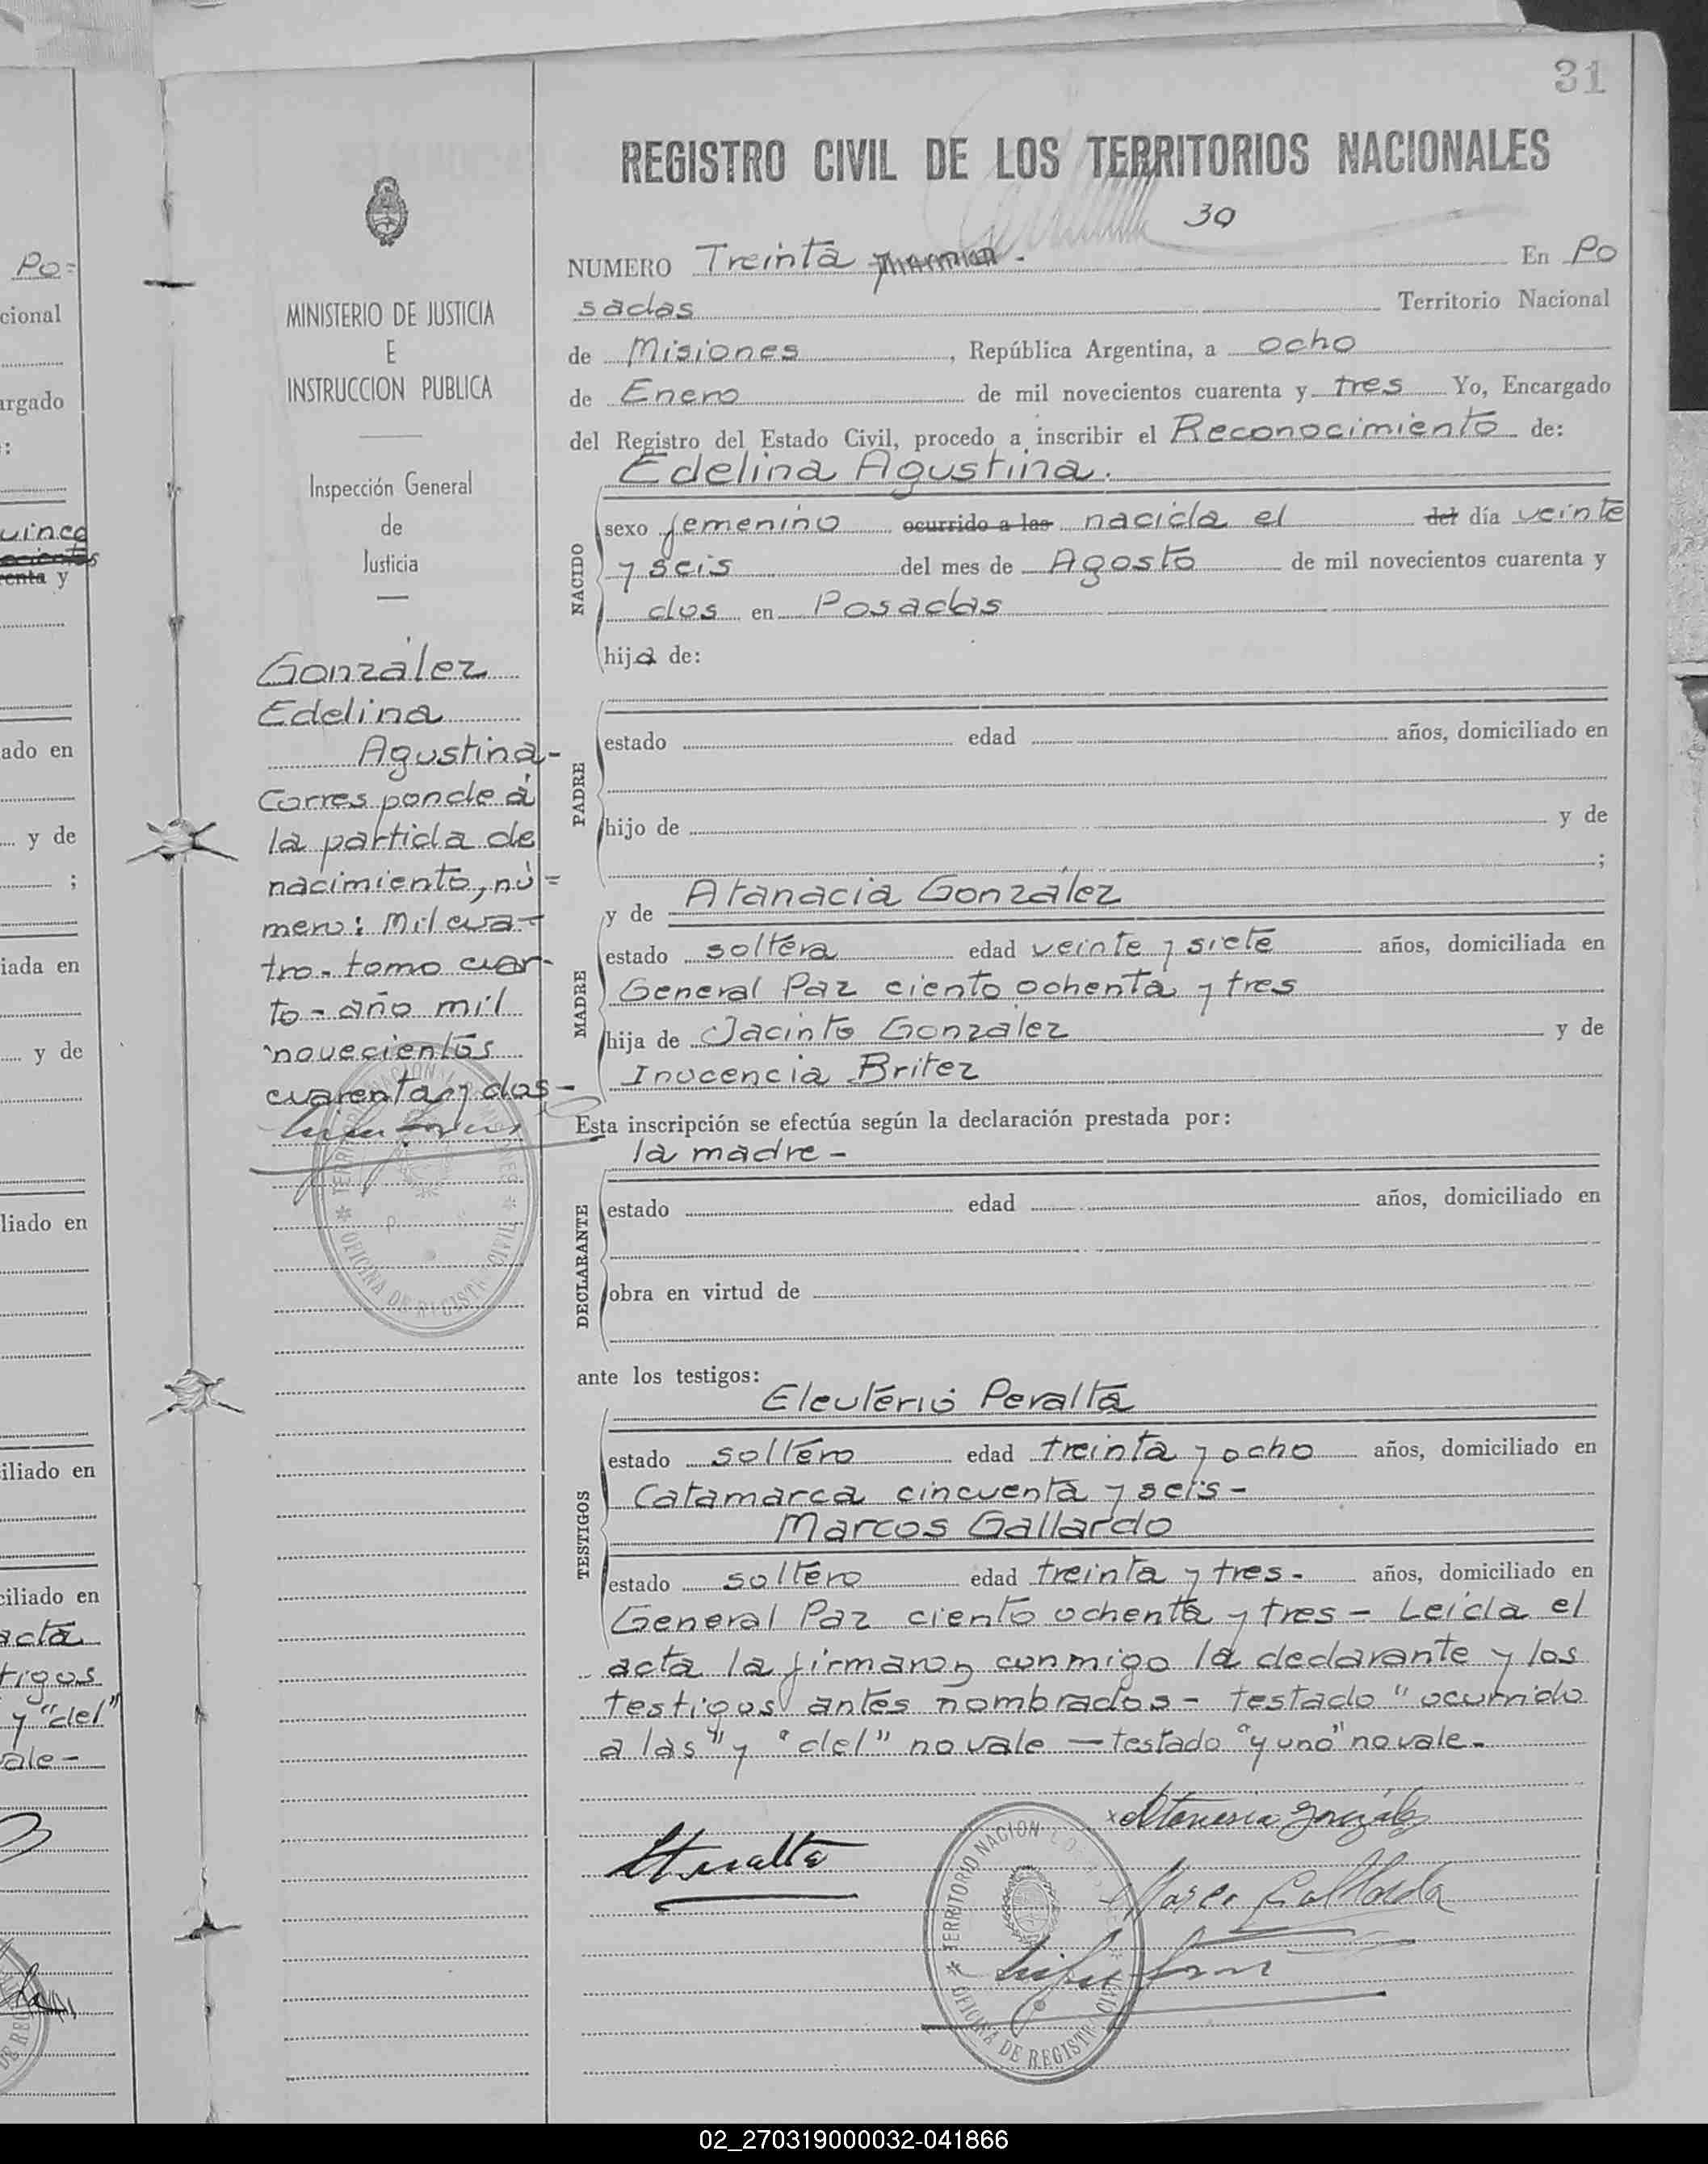 31
REGISTRO CIVIL DE LOS TERRITORIOS NACIONALES
30
NUMERO Treinta En Po
sadas Territorio Nacional
de Misiones, República Argentina, a ocho
de Enero de mil novecientos cuarenta y tres Yo, Encargado
del Registro del Estado Civil, procedo a inscribir el Reconocimiento de:
Edelina Agustina.
NACIDO
sexo femenino ocurrido a las nacida el del día veinte
y seis del mes de Agosto de mil novecientos cuarenta y
dos en Posadas
hija de:
PADRE
estado edad años, domiciliado en
hijo de y de
;
MADRE
y de Atanacia González
estado soltera edad veinte y siete años, domiciliada en
General Paz ciento ochenta y tres
hija de Jacinto González y de
Inocencia Britez
Esta inscripción se efectúa según la declaración prestada por:
la madre -
DECLARANTE
estado edad años, domiciliado en
obra en virtud de
ante los testigos:
TESTIGOS
Eleuterio Peralta
estado soltero edad treinta y ocho años, domiciliado en
Catamarca cincuenta y seis -
Marcos Gallardo
estado soltero edad treinta y tres - años, domiciliado en
General Paz ciento ochenta y tres - Leída el
acta la firmaron conmigo la declarante y los
testigos antes nombrados - testado "ocurrido
a las" y "del" no vale — testado "y uno" no vale.
Atanacia González
Marcos Gallardo
TERRITORIO NACIONAL
OFICINA DE REGISTRO CIVIL
MINISTERIO DE JUSTICIA
E
INSTRUCCION PUBLICA
Inspección General
de
Justicia
González
Edelina
Agustina -
Corresponde á
la partida de
nacimiento, nú=
mero: Mil cua-
tro - tomo cuar-
to - año mil
novecientos
cuarenta y dos -
OFICINA DE REGISTRO CIVIL
Po=
cional
argado
:
uince
enta y
ado en
y de
;
iada en
y de
liado en
iliado en
ciliado en
acta
tigos
y "del"
ale -
02_270319000032-041866